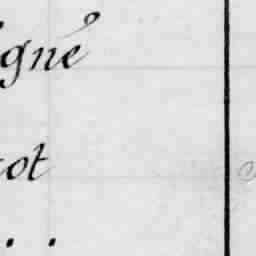 igné
cot
. .